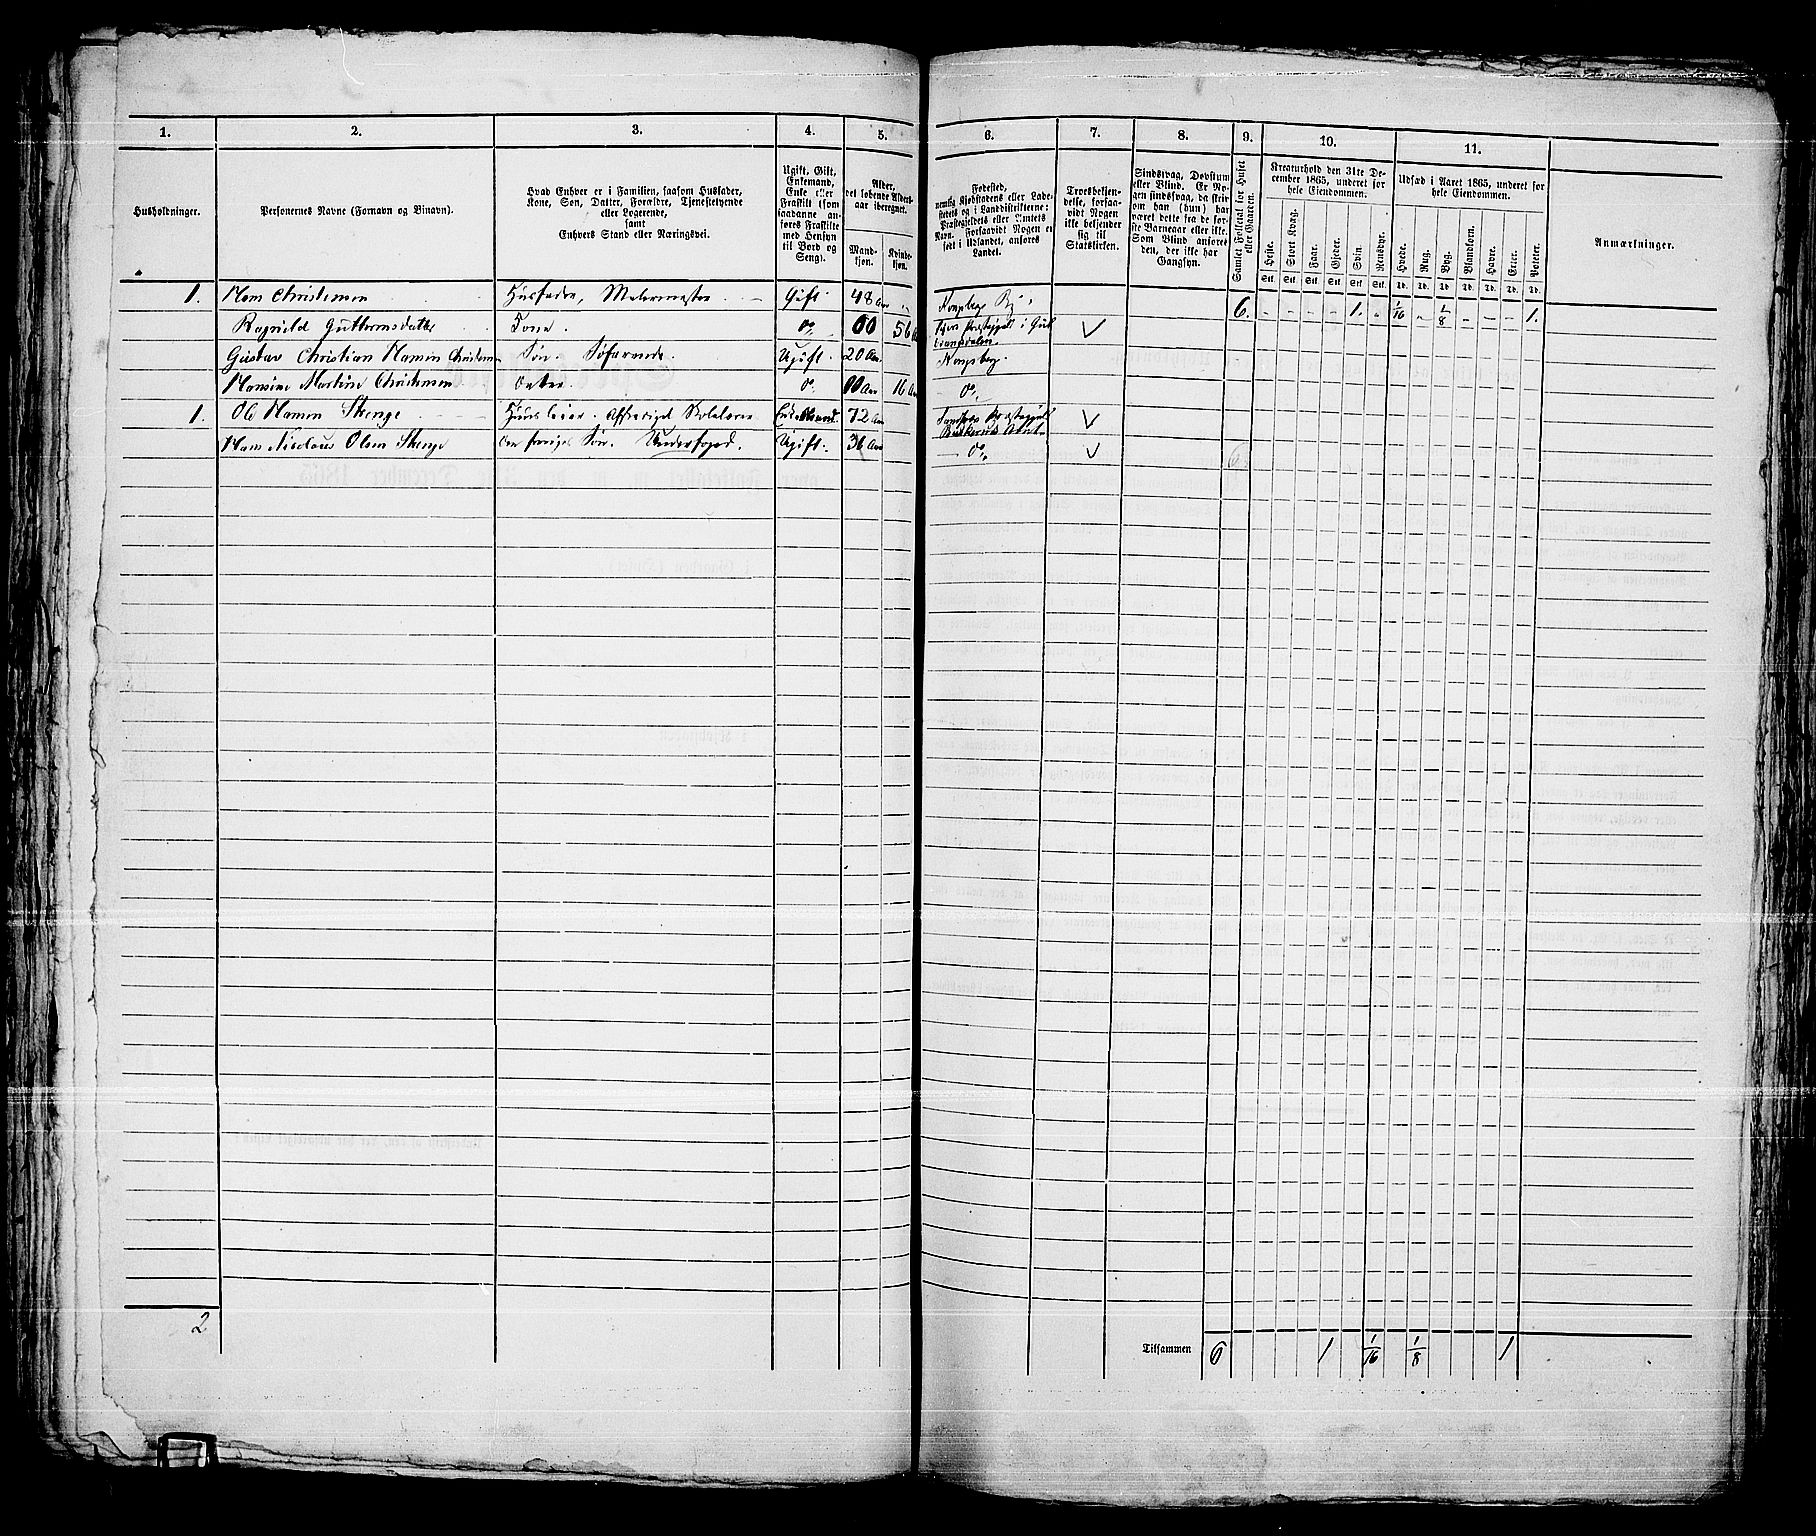 1. 2. 3. 4. 5. 6. 7. 8. 9. 10. 11.
Husholdninger.
Personernes Navne (Fornavn og Binavn).
Hvad Enhver er i Familien, saasom Husfader,
Kone, Søn, Datter, Forældre, Tjenestetyende
eller Logerende,
samt
Enhvers Stand eller Næringsvei.
Ugift, Gift,
Enkemand,
Enke eller
Fraskilt (som
saadanne an-
føres Fraskilte
med Hensyn
til Bord og
Seng).
Alder,
det løbende Alders-
aar iberegnet.
Mand-
kjøn.
Kvinde-
kjøn.
Fødested,
nemlig Kjøbstadens eller Lade-
stedets og i Landdistrikterne:
Præstegjeldets eller Amtets
Navn. Forsaavidt Nogen er
født i Udlandet, anføres
Landet.
Troesbekjen-
delse, forsaa-
vidt Nogen
ikke bekjender
sig til
Statskirken.
Sindssvag, Døvstum
eller Blind. Er No-
gen sindssvag, da skri-
ves om han (hun) har
været dette fra de før-
ste Barneaar eller ikke.
Som Blind anføres
den, der ikke har
Gangsyn.
Samlet Folketal for Huset
eller Gaarden.
Kreaturhold den 31te De-
cember 1865, underet for
hele Eiendommen.
Heste. Stort Kvæg. Faar. Gjeder. Svin. Rensdyr.
Stk. Stk. Stk. Stk. Stk. Stk.
Udsæd i Aaret 1865, underet for
hele Eiendommen.
Hvede. Rug. Byg. Blandkorn. Havre. Erter. Poteter.
Td. Td. Td. Td. Td. Td. Td.
Anmærkninger.
1. Hans Christensen Husfader, Malermester Gift 48 Aar Kongsberg By 6. 1. 1/16 1/8 1.
Ragnild Guttormsdatter Kone. Do 56
Gustav Christian Hansen Christensen Søn. Søfarende. Ugift. 20 Aar Kongsberg.
Hansine Martine Christensen Datter. Do 16 Aar Do
1. Ole Hansen Skenge Huusleier. Afskediget Skolelærer Enkemand 72 Aar
Hans Nicolaus Olsen Skenge den foriges Søn. Underfoged. Ugift. 36 Aar Do 6
2
Tilsammen 6 1 1/16 1/8 1